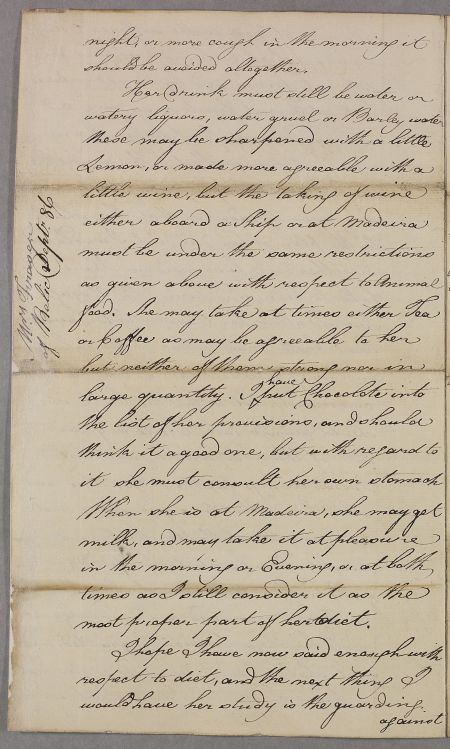 night, or more cough in the morning it
should be avoided altogether.
Her drink must still be water or
watery liquors, water gruel or Barley water
these may be sharpened with a little
Lemon, or made more agreeable with a
little wine, but the taking of wine
either aboard a Ship or at Madeira
must be under the same restrictions
as given above with respect to Animal
food. She may take at times either Tea
or Coffee as may be agreeable to her
but neither of them strong nor in
large quantity. I have put Chocolate into
the list of her provisions, and should
think it a good one, but with regard to
it she must consult her own stomach
When she is at Madeira, she may get
milk, and may take it at pleasure
in the morning or Evening, or at both
times as I still consider it as the
most proper part of her diet.
I hope I have now said enough with
respect to diet, and the next thing I
would have her study is the guarding
against
Sept. 86